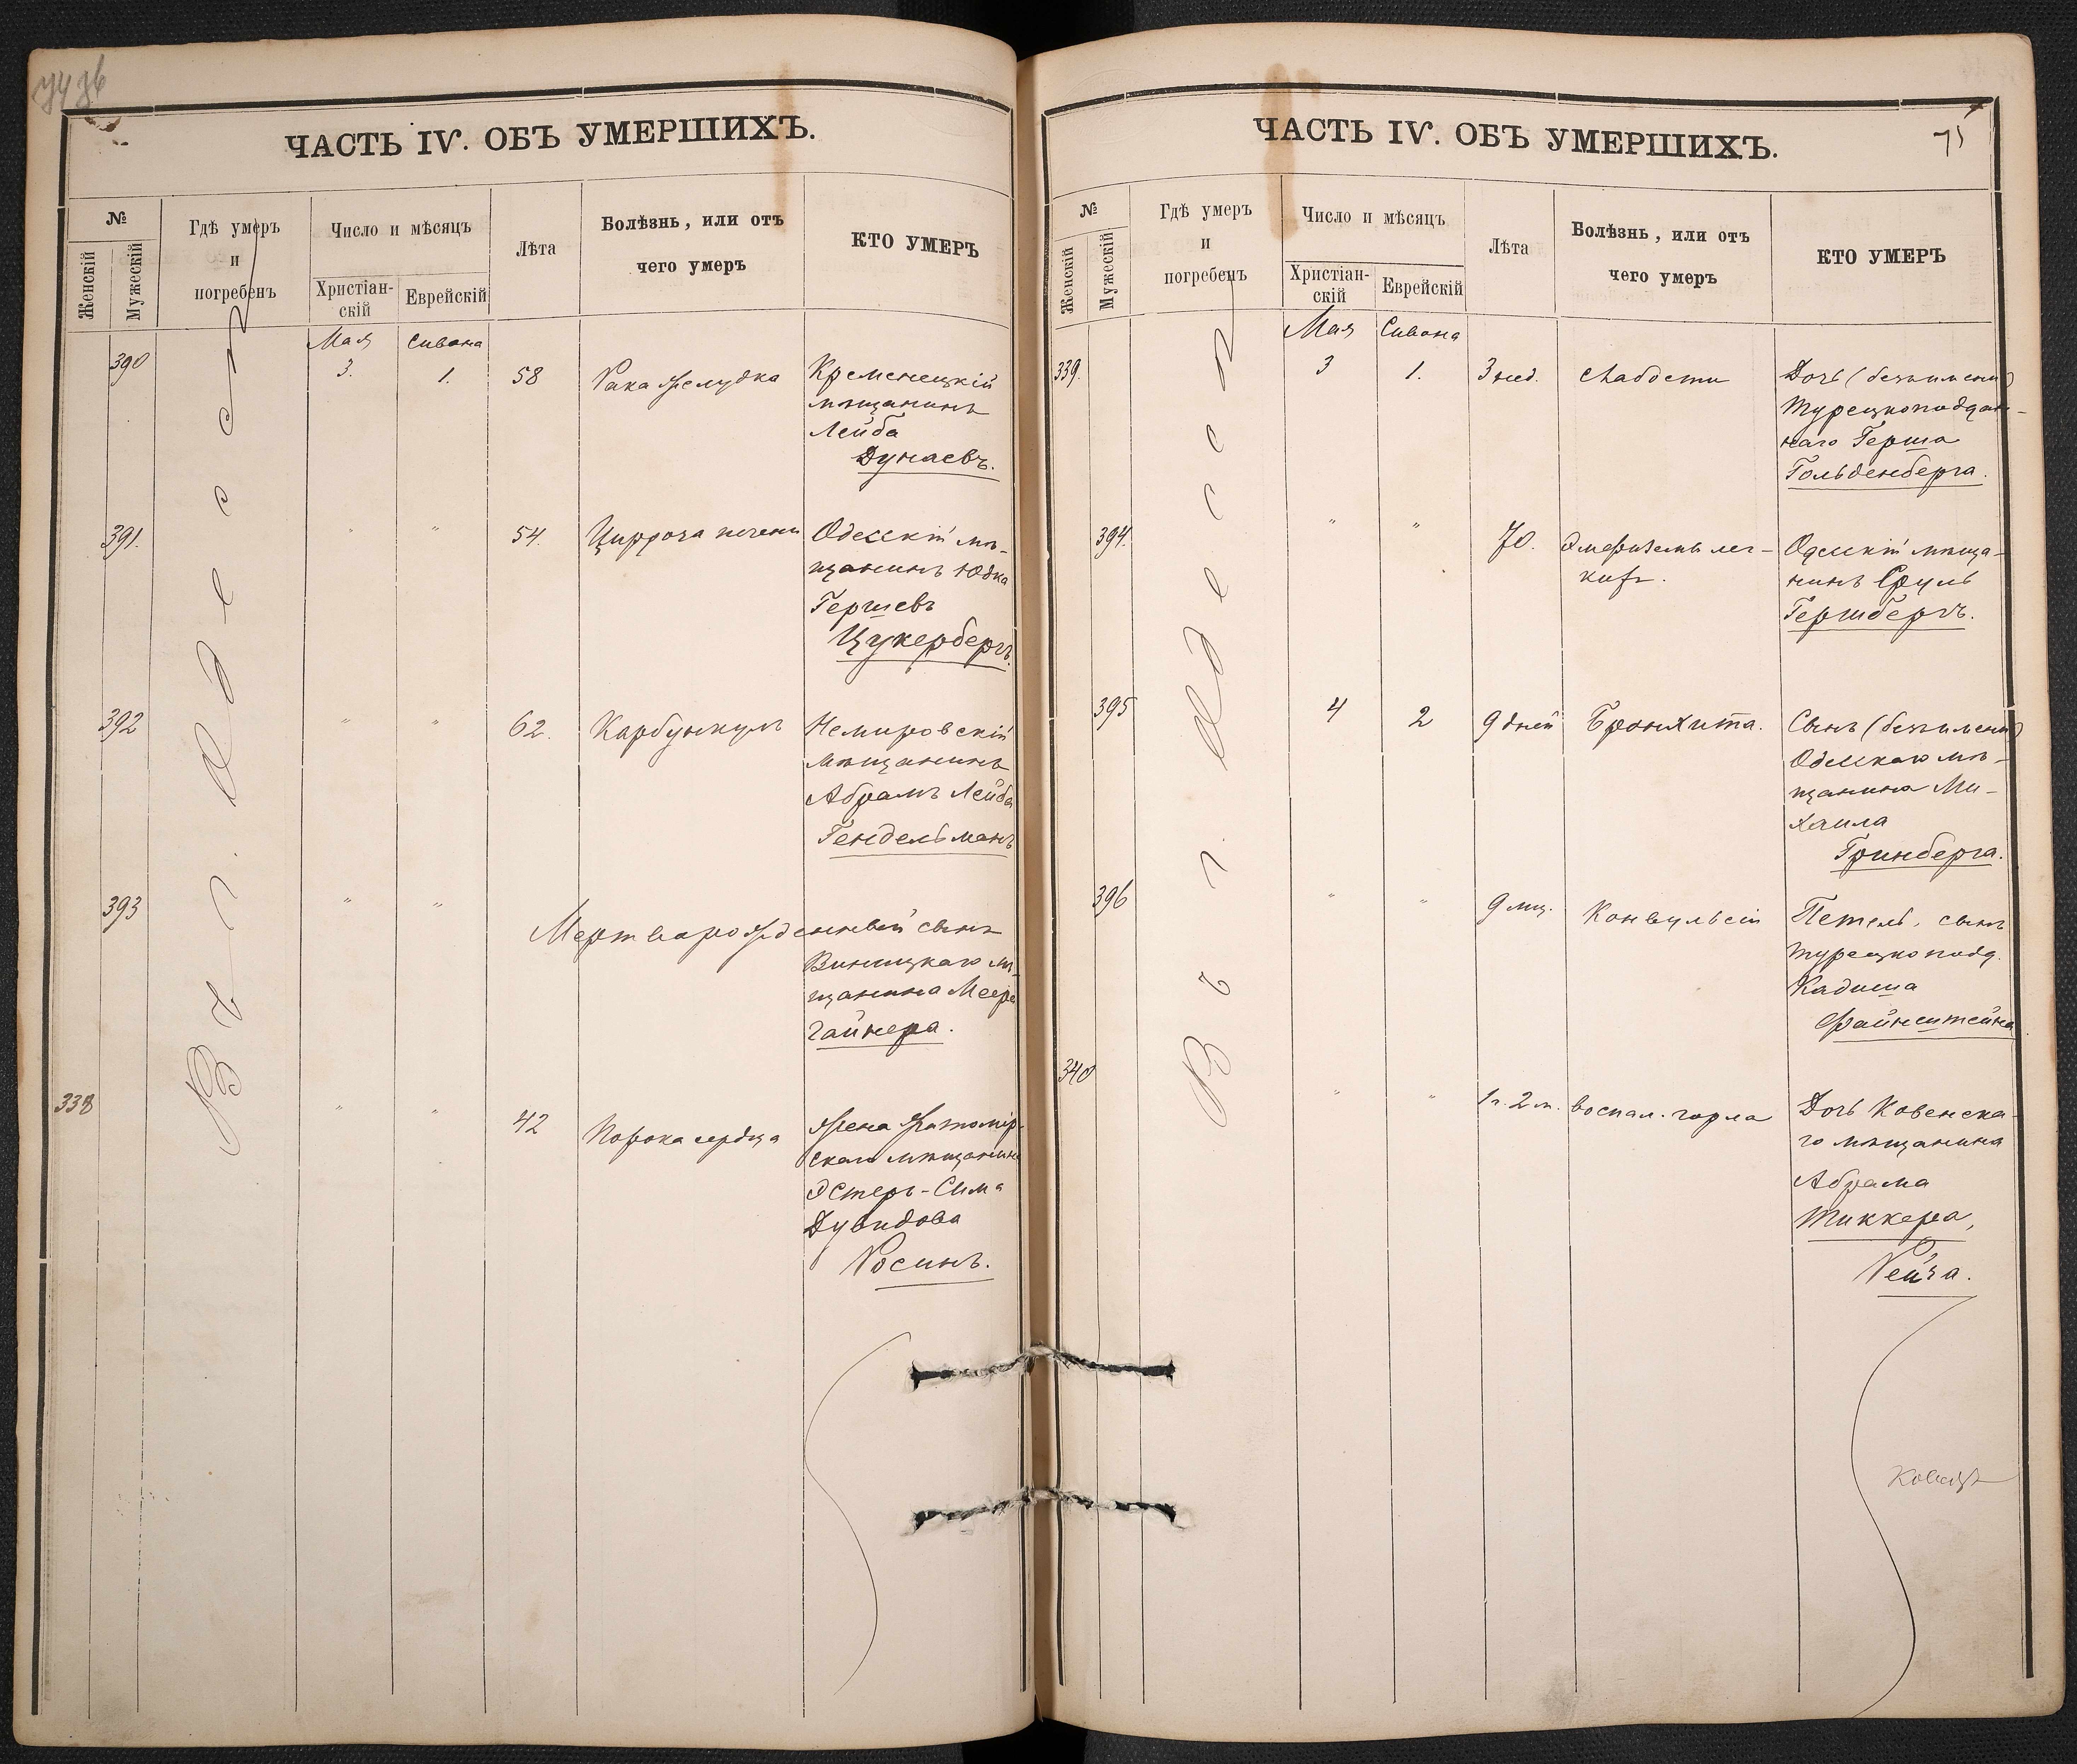 ЧАСТЬ IV. ОБЪ УМЕРШИХЪ.
№
Женскій
Мужескій
Гдѣ умеръ
и
погребенъ
Число и мѣсяцъ
Христіан-
скій
Еврейскій
Лѣта
Болѣзнь, или отъ
чего умеръ
КТО УМЕРЪ
Въ г. Одессѣ
Мая Сивана
390 3. 1. 58 Рака желудка Кременецкій
мѣщанинъ
Лейба
Дунаевъ.
391. " " 54. Цирроза печени Одесскій мѣ-
щанинъ Юдка
Гершевъ
Цукербергъ.
392 " " 62. Карбункулъ Немировскій
мѣщанинъ
Абрамъ Лейба
Гендельманъ
393 " " Мертворожденный сынъ
Виницкаго мѣ-
щанина Меера
Гайнера.
338 " " 42 Порока сердца Жена Житомір-
скаго мѣщанина
Эстеръ-Сима
Дувидова
Росинъ.
ЧАСТЬ IV. ОБЪ УМЕРШИХЪ.
75
№
Женскій
Мужескій
Гдѣ умеръ
и
погребенъ
Число и мѣсяцъ
Христіан-
скій
Еврейскій
Лѣта
Болѣзнь, или отъ
чего умеръ
КТО УМЕРЪ
Въ г. Одессѣ
Мая Сивана
339. 3 1. 3 нед. Слабости Дочь (безъимени)
турецкоподдан-
наго Герша
Гольденберга.
394. " " 70. Эмфиземы лег-
кихъ. Одесскій мѣща-
нинъ Сруль
Гершбергъ.
395 4 2 9 дней Бронхита. Сынъ (безъимени)
Одесскаго мѣ-
щанина Ми-
хаила
Гринберга.
396 " " 9 мц. Конвульсіи Петель, сынъ
турецкоподд.
Кадиша
Файнштейна
340 " " 1 г. 2 м. воспал. горла Дочь Ковенска-
го мѣщанина
Абрама
Тиккера,
Рейза.